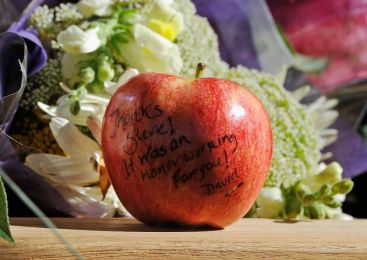 Thanks
Steve!
It was an
honor working
for you!
David